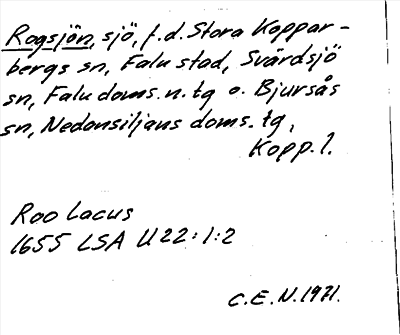 Rogsjön, sjö, f.d. Stora Koppar-
bergs sn, Falu stad, Svärdsjö
sn, Falu doms. n. tg o. Bjursås
sn, Nedansiljans doms. tg,
Kopp. l.
Roo Lacus
1655 LSA U22:1:2
C.E.N. 1971.